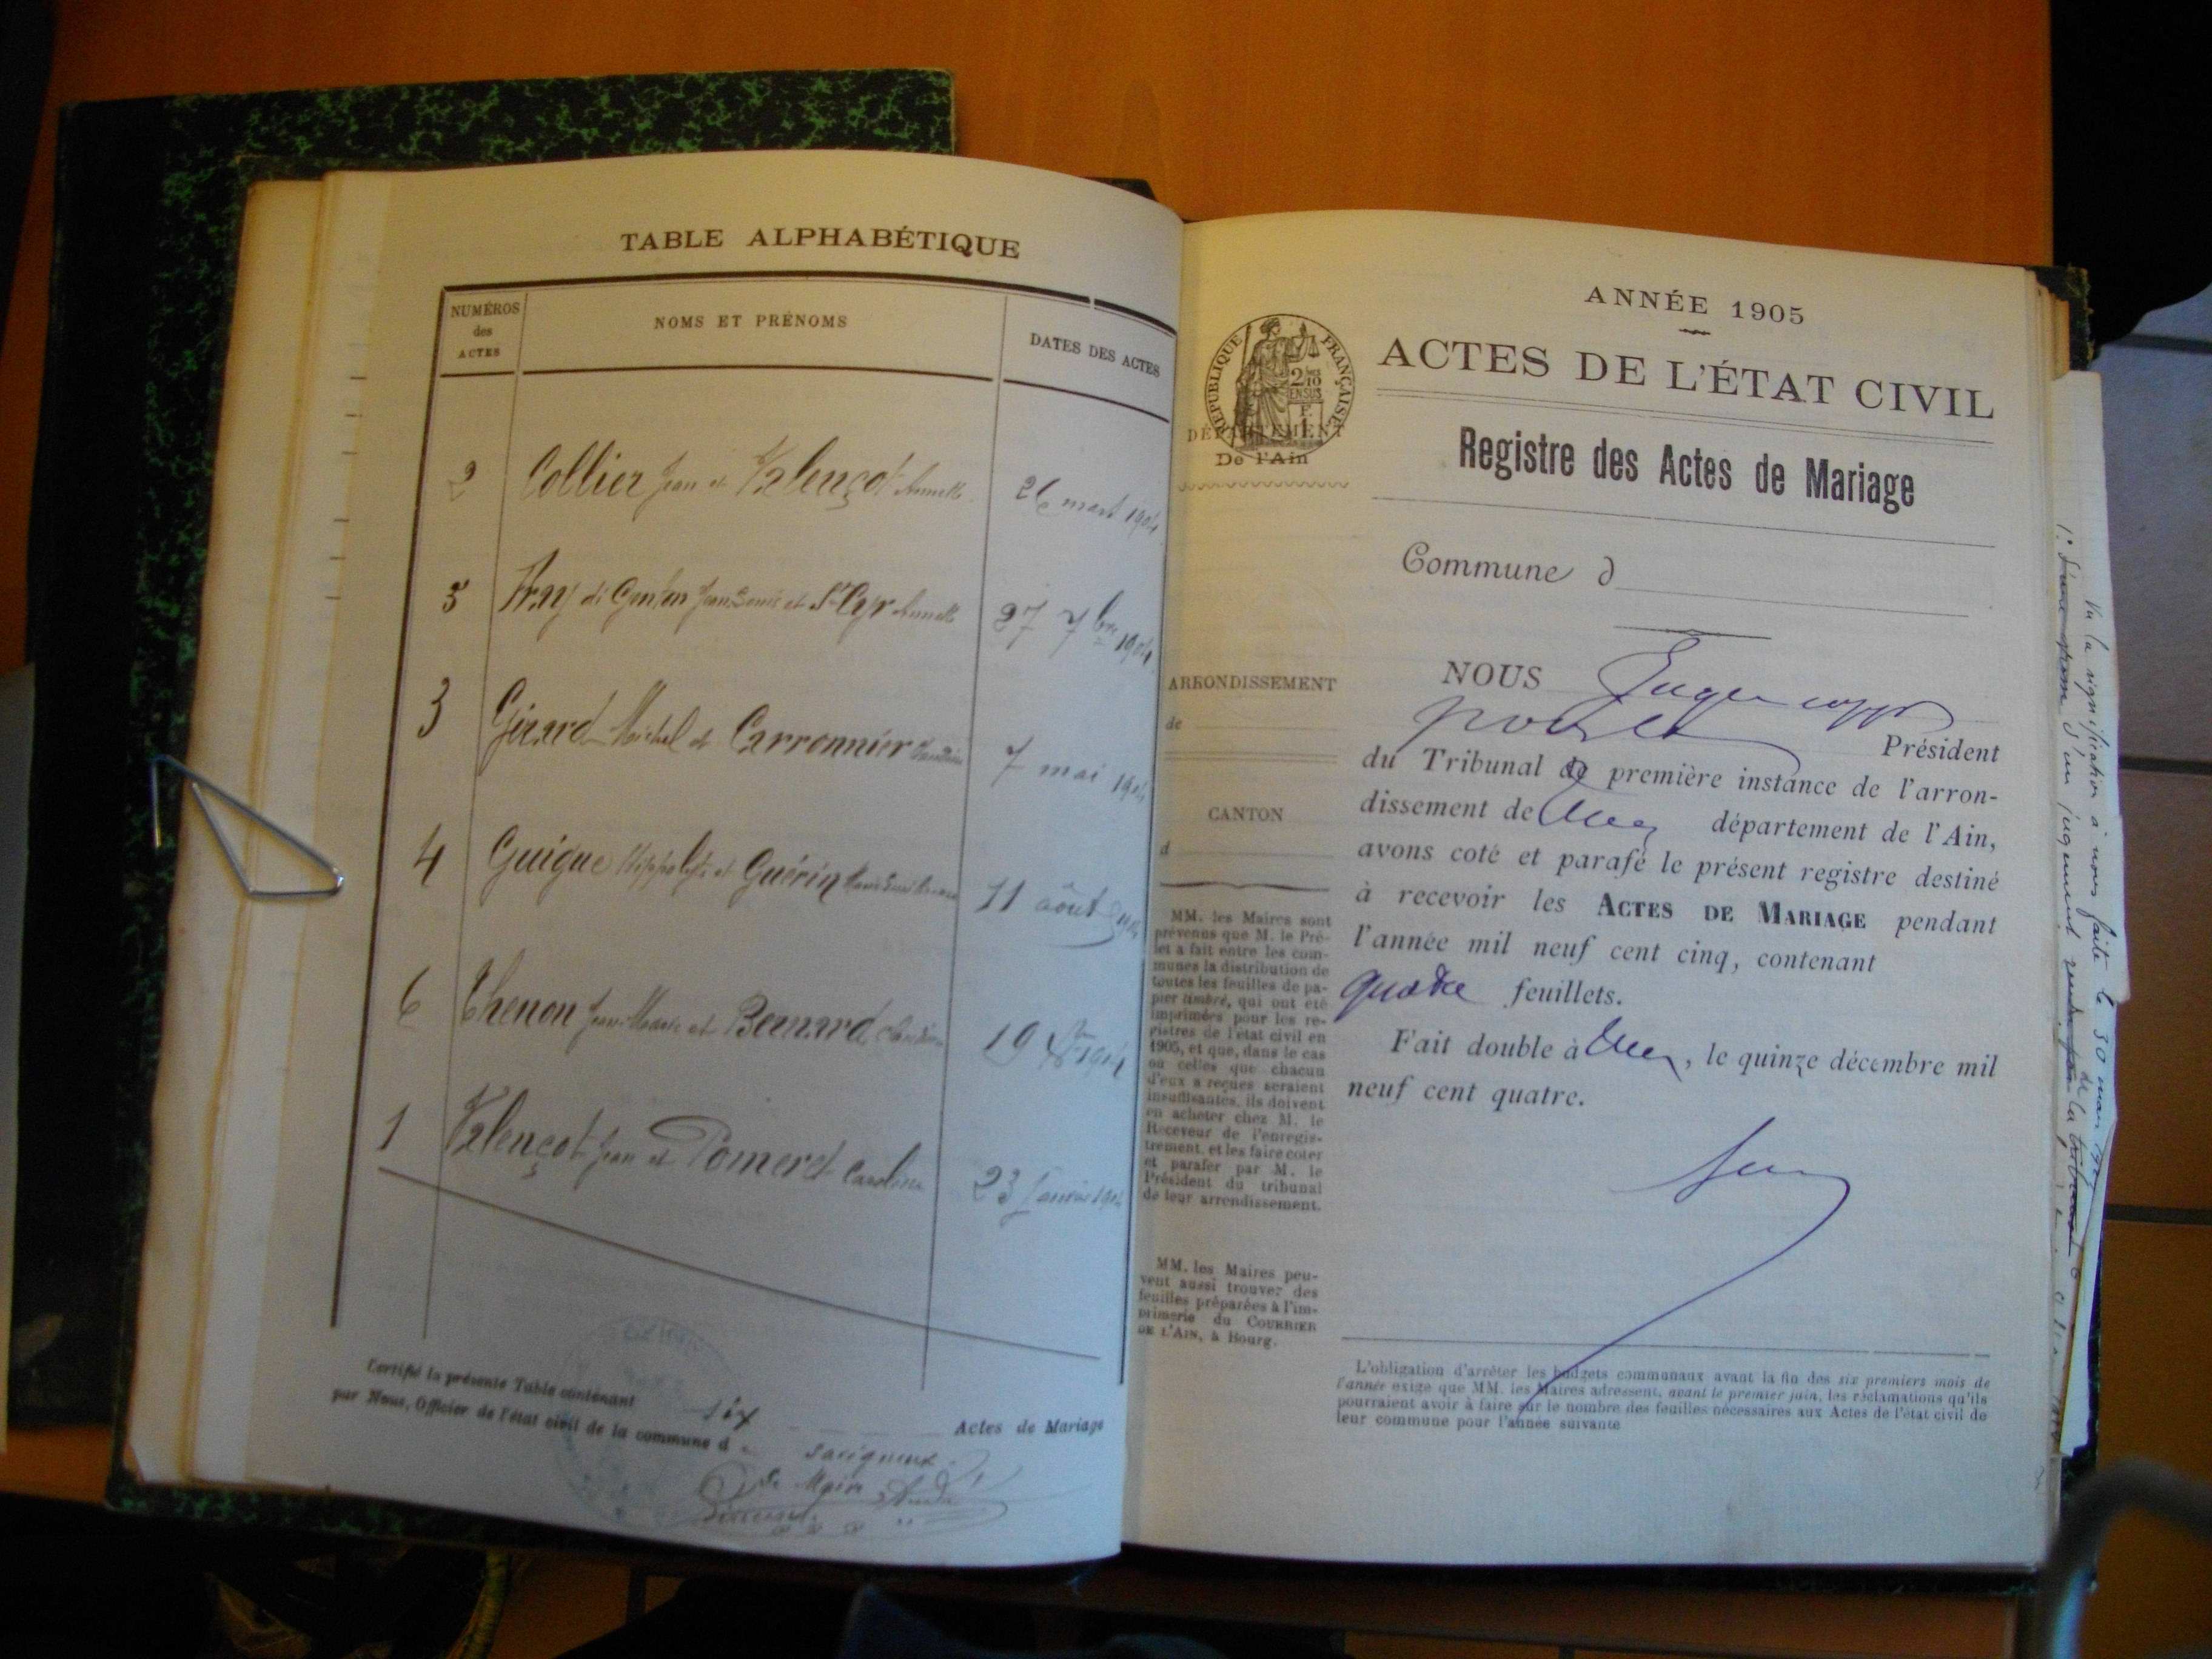 TABLE ALPHABÉTIQUE
NUMÉROS
des
ACTES
NOMS ET PRÉNOMS
DATES DES ACTES
2 Collier Jean et Valençot Annette 26 mars 1904
5 Fray di Genton Jean Louis et St Cyr Annette 27 7bre 1904
3 Girard Michel et Carronnier Claudine 7 mai 1904
4 Guigue Hippolyte et Guérin 11 août 1904
6 Thenon Jean Marie et Bernard Claudine 19 1904
1 Valençot Jean et Pomeret Caroline 23 Janvier 1904
Certifié la présente Table contenant six Actes de Mariage
par Nous, Officier de l'état civil de la commune d
Savigneux
Le Maire
ANNÉE 1905
ACTES DE L'ÉTAT CIVIL
Registre des Actes de Mariage
RÉPUBLIQUE FRANÇAISE
2/10
EN SUS
DÉPARTEMENT
De l'Ain
Commune d
ARRONDISSEMENT
de
CANTON
d
MM. les Maires sont
prévenus que M. le Pré-
fet a fait entre les com-
munes la distribution de
toutes les feuilles de pa-
pier timbré, qui ont été
imprimées pour les re-
gistres de l'état civil en
1905, et que, dans le cas
où celles que chacun
d'eux a reçues seraient
insuffisantes, ils doivent
en acheter chez M. le
Receveur de l'enregis-
trement, et les faire coter
et parafer par M. le
Président du tribunal
de leur arrondissement.
MM. les Maires peu-
vent aussi trouver des
feuilles préparées à l'im-
primerie du COURRIER
DE L'AIN, à Bourg.
NOUS Juge
Président
du Tribunal de première instance de l'arron-
dissement de département de l'Ain,
avons coté et parafé le présent registre destiné
à recevoir les ACTES DE MARIAGE pendant
l'année mil neuf cent cinq, contenant
quatre feuillets.
Fait double à , le quinze décembre mil
neuf cent quatre.
L'obligation d'arrêter les budgets communaux avant la fin des six premiers mois de
l'année exige que MM. les Maires adressent, avant le premier juin, les réclamations qu'ils
pourraient avoir à faire sur le nombre des feuilles nécessaires aux Actes de l'état civil de
leur commune pour l'année suivante
Vu la signification à nous faite le 30 mars
d'un jugement